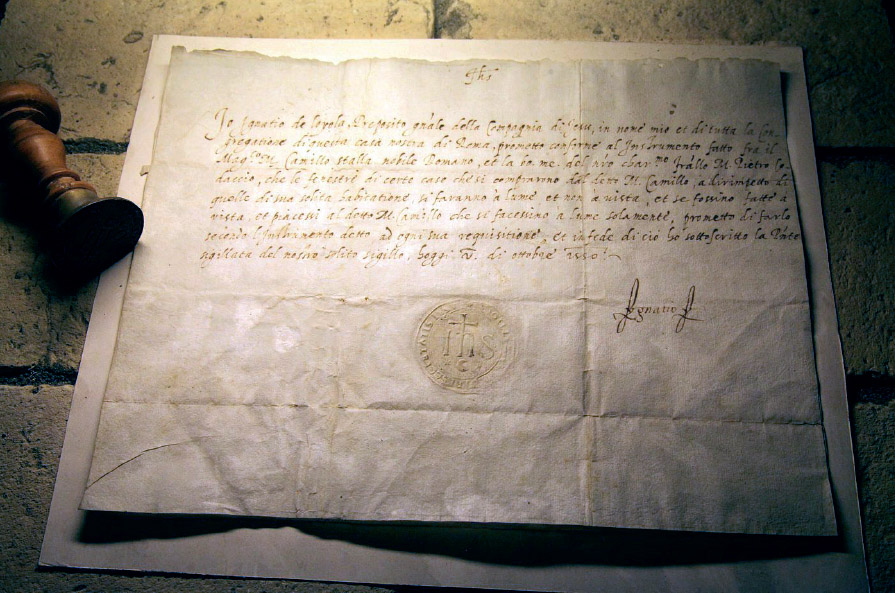 Jhs
Jo Ignatio de Loyola Preposito gnãle della Compagnia di Jesu, in nome mio et di tutta la Con,
gregatione di questa casa nostra di Roma, prometto conforme al Jnstrumento fatto fra il
Mag.co M. Camillo stalla nobile Romano, et la bo. me. del nro char.mo frãllo M. Pietro Co,
daccio, che le fenestre di certe case che si comprarno dal detto M. Camillo, a dirimpetto di
quelle di sua solita habitatione, si faranno à lume, et non à vista, et se fossino fatte à
vista, et piacessi al detto M. Camillo che si facessino à lume solamente, prometto di farlo
secondo l'Jnstrumento detto ad ogni sua requisitione, et infede di ciò hò sottoscritto la Pñte
sigillata del nostro solito sigillo, hoggi di ottobre 1550
Ignatio
IHS